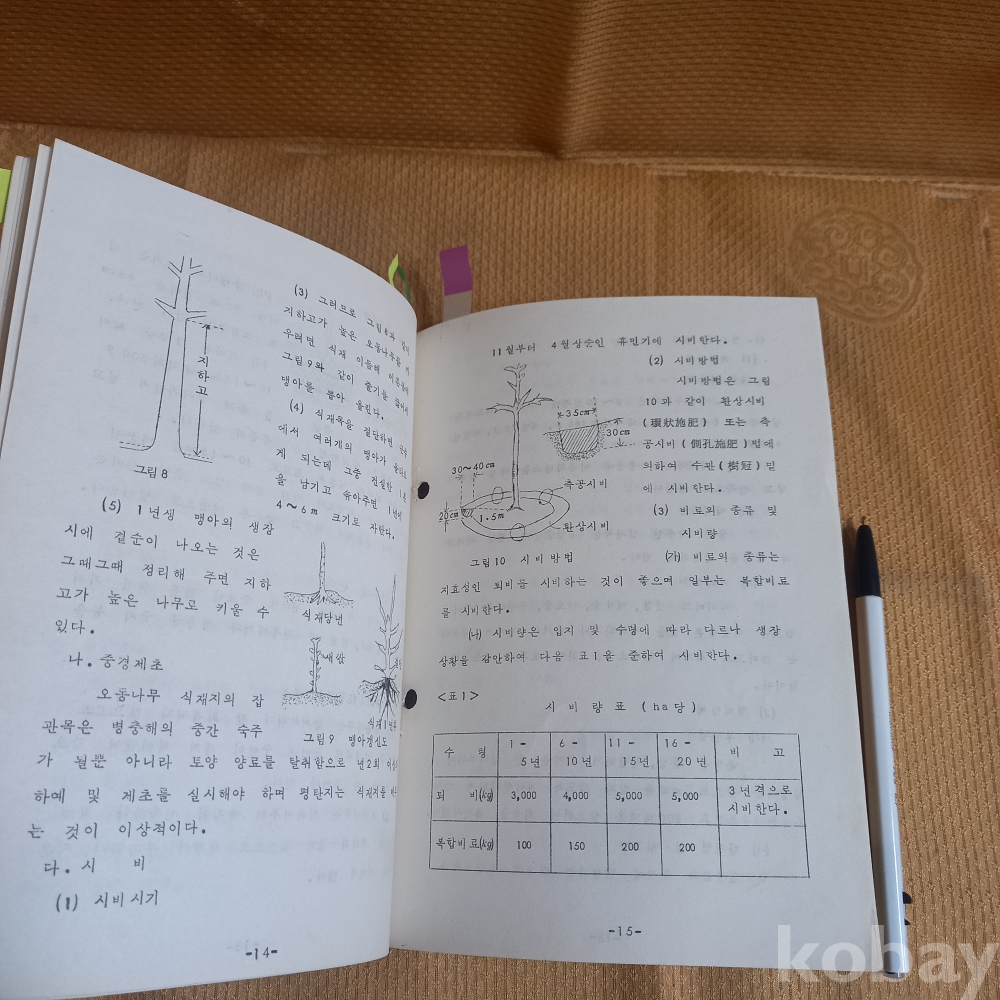 지하고
그림 8
(3) 그러므로 그림 8과 같이
지하고가 높은 오동나무를 키
우려면 식재 이듬해
그림 9와 같이 줄기를
맹아를 뽑아 올린다.
(4) 식재목을 절단하면
에서 여러개의 맹아가
게 되는데 그중 건실한 1본
을 남기고 솎아주면 1년에
4～6m 크기로 자란다.
(5) 1년생 맹아의 생장
시에 곁순이 나오는 것은
그때그때 정리해 주면 지하
고가 높은 나무로 키울 수
있다.
식재당년
새싹
나. 중경제초
오동나무 식재지의 잡
관목은 병충해의 중간 숙주
그림 9 맹아갱신도
가 될뿐 아니라 토양 양료를 탈취함으로 년2회
하예 및 제초를 실시해야 하며 평탄지는 식재지를
는 것이 이상적이다.
다. 시 비
(1) 시비시기
-14-
11월부터 4월상순인 휴면기에 시비한다.
(2) 시비방법
시비방법은 그림
10과 같이 환상시비
(環狀施肥) 또는 측
공시비(側孔施肥)법에
의하여 수관(樹冠)밑
에 시비한다.
(3) 비료의 종류 및
시비량
35cm
30cm
30～40cm
측공시비
20cm
1.5m
환상시비
그림10 시비방법
(가) 비료의 종류는
지효성인 퇴비를 시비하는 것이 좋으며 일부는 복합비료
를 시비한다.
(나) 시비량은 입지 및 수령에 따라 다르나 생장
상황을 감안하여 다음 표1을 준하여 시비한다.
<표1>
시비량표 (ha당)
수 령 1-5년 6-10년 11-15년 16-20년 비 고
퇴 비(kg) 3,000 4,000 5,000 5,000 3년격으로 시비한다.
복합비료(kg) 100 150 200 200
-15-
kobay